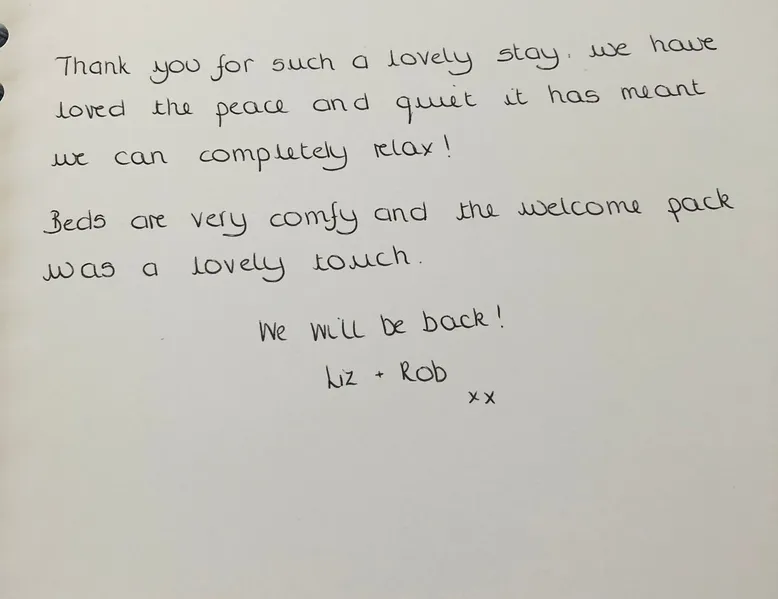 Thank you for such a lovely stay. we have
loved the peace and quiet it has meant
we can completely relax!
Beds are very comfy and the welcome pack
was a lovely touch.
We will be back!
Liz + Rob
xx